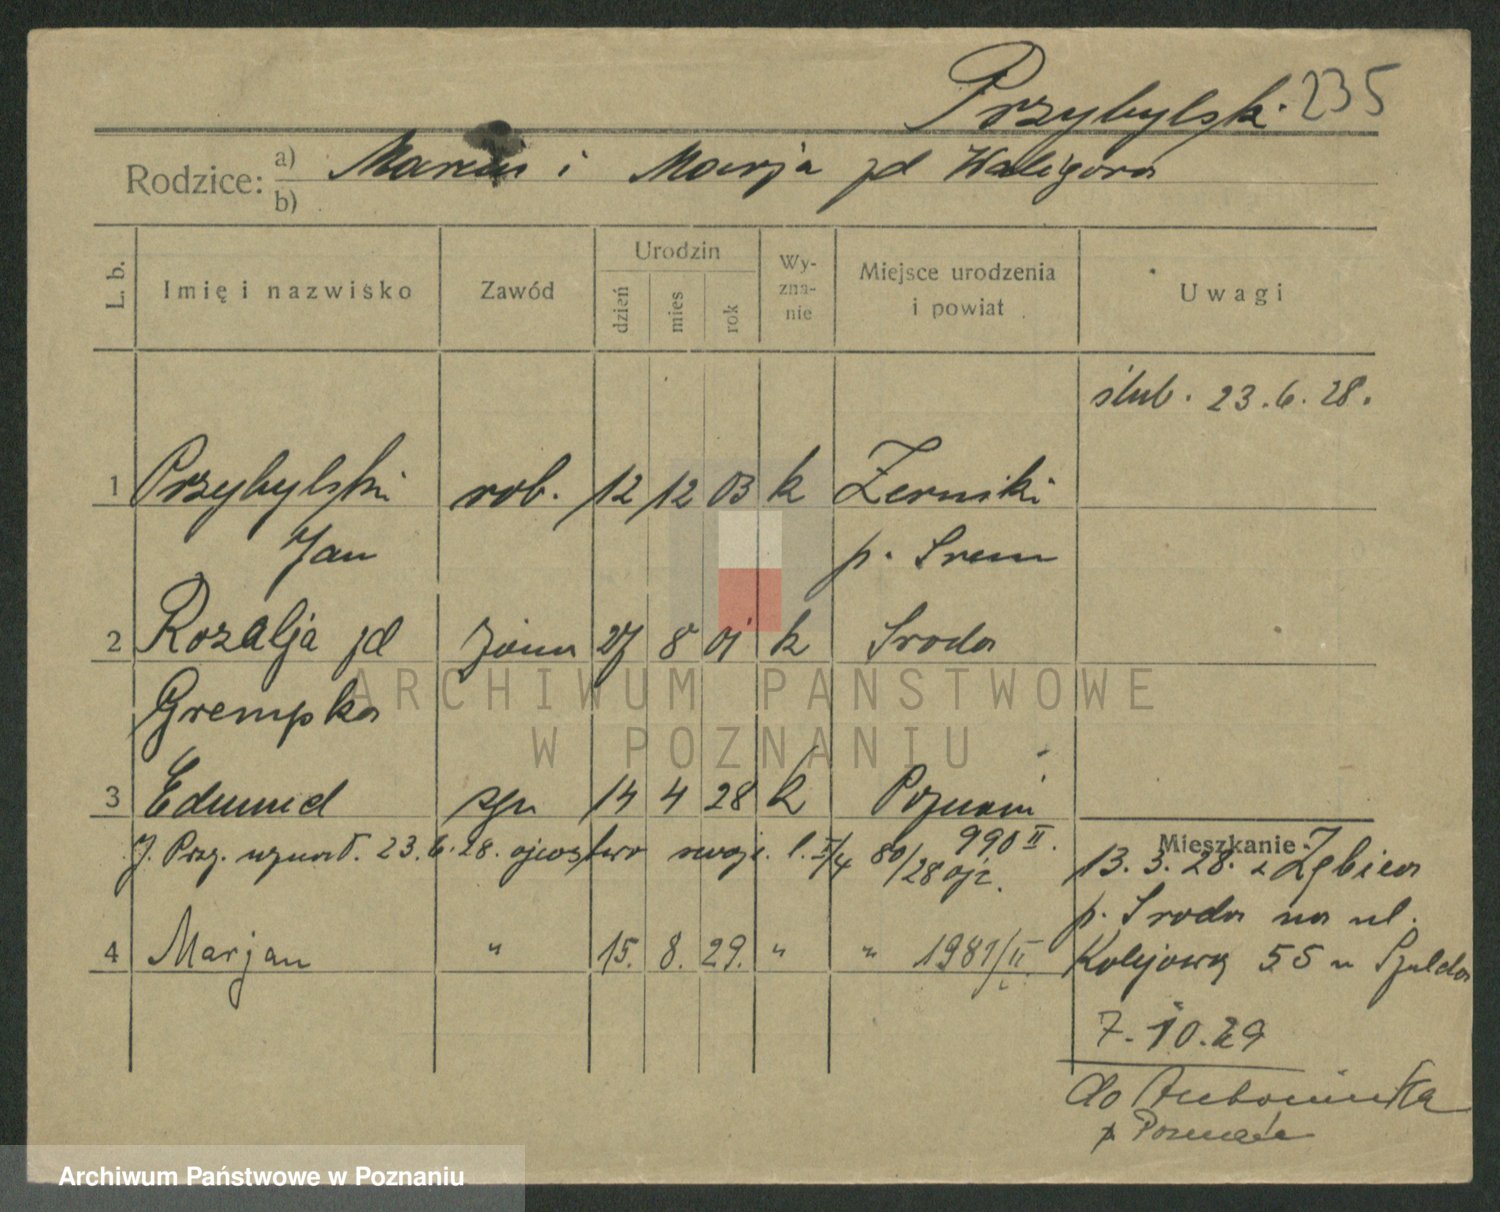 Przybylski 235
Rodzice: a) Marcin i Marja zd Waligóra
b)
L. b. Imię i nazwisko Zawód Urodzin dzień mies rok Wy-zna-nie Miejsce urodzenia i powiat Uwagi
ślub. 23.6.28.
1 Przybylski rob. 12 12 03 k Zerniki
Jan p. Srem
2 Rozalja zd żona 27 8 01 k Sroda
Grempka
ARCHIWUM PAŃSTWOWE
W POZNANIU
3 Edmund syn 14 4 28 k Poznań
J. Prz. uznał. 23.6.28. ojcostwo swoje 990 II.
80/28
Mieszkanie
13.3.28. z
p. Sroda na ul.
4 Marjan " 15. 8. 29. " " 1981/II
Kolejowa 55 u
7.10.29
do
p Poznań
Archiwum Państwowe w Poznaniu